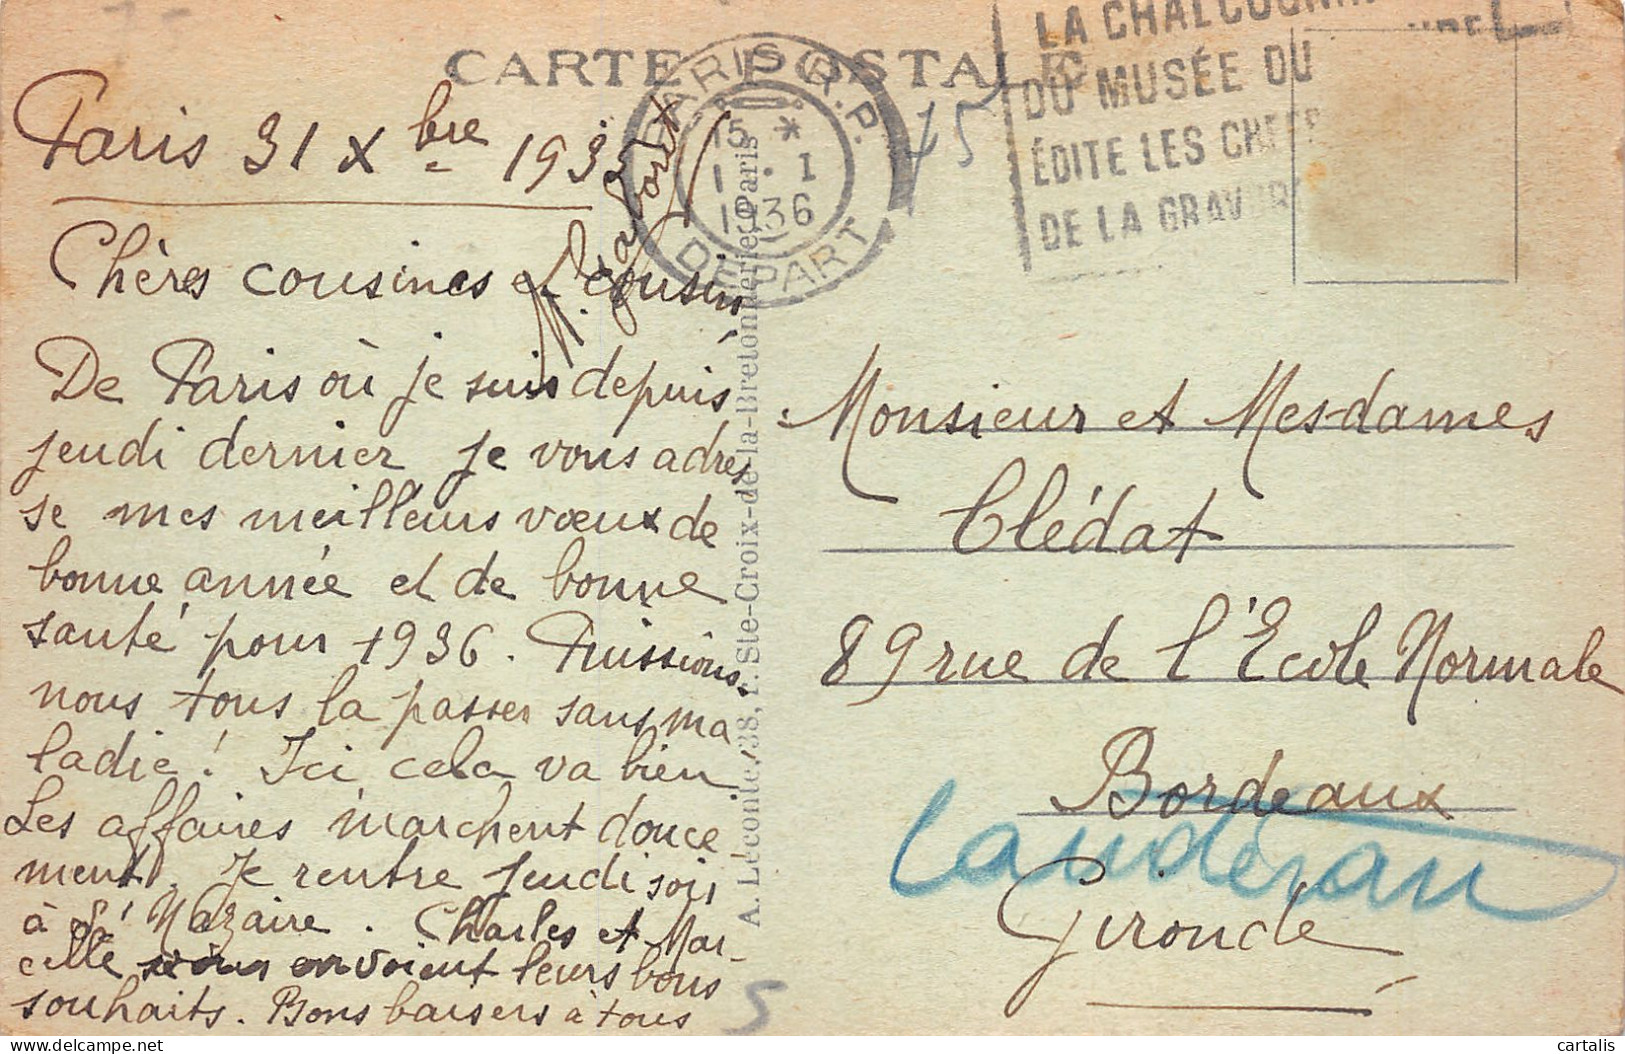 CARTE POSTALE
PARIS R.P.
15 *
1 . I
1936
DEPART
LA CHALCOGRA
DU MUSÉE DU
ÉDITE LES CHEFS
DE LA GRAVURE
15
Paris 31 Xbre 193
Chères cousines et cousin
De Paris où je suis depuis
jeudi dernier je vous adres
se mes meilleurs vœux de
bonne année et de bonne
santé pour 1936. Puissions
nous tous la passer sans ma
ladie! Ici cela va bien
Les affaires marchent douce
ment. Je rentre jeudi soir
à St Nazaire. Charles et Mar-
celle vous envoient leurs bons
souhaits. Bons baisers à tous
A. Leconte, 38, r. Ste-Croix-de-la-Bretonnerie, Paris
Monsieur et Mesdames
Clédat
89 rue de l'École Normale
Bordeaux
Caudéran
Gironde
5
delcampe.net
cartalis